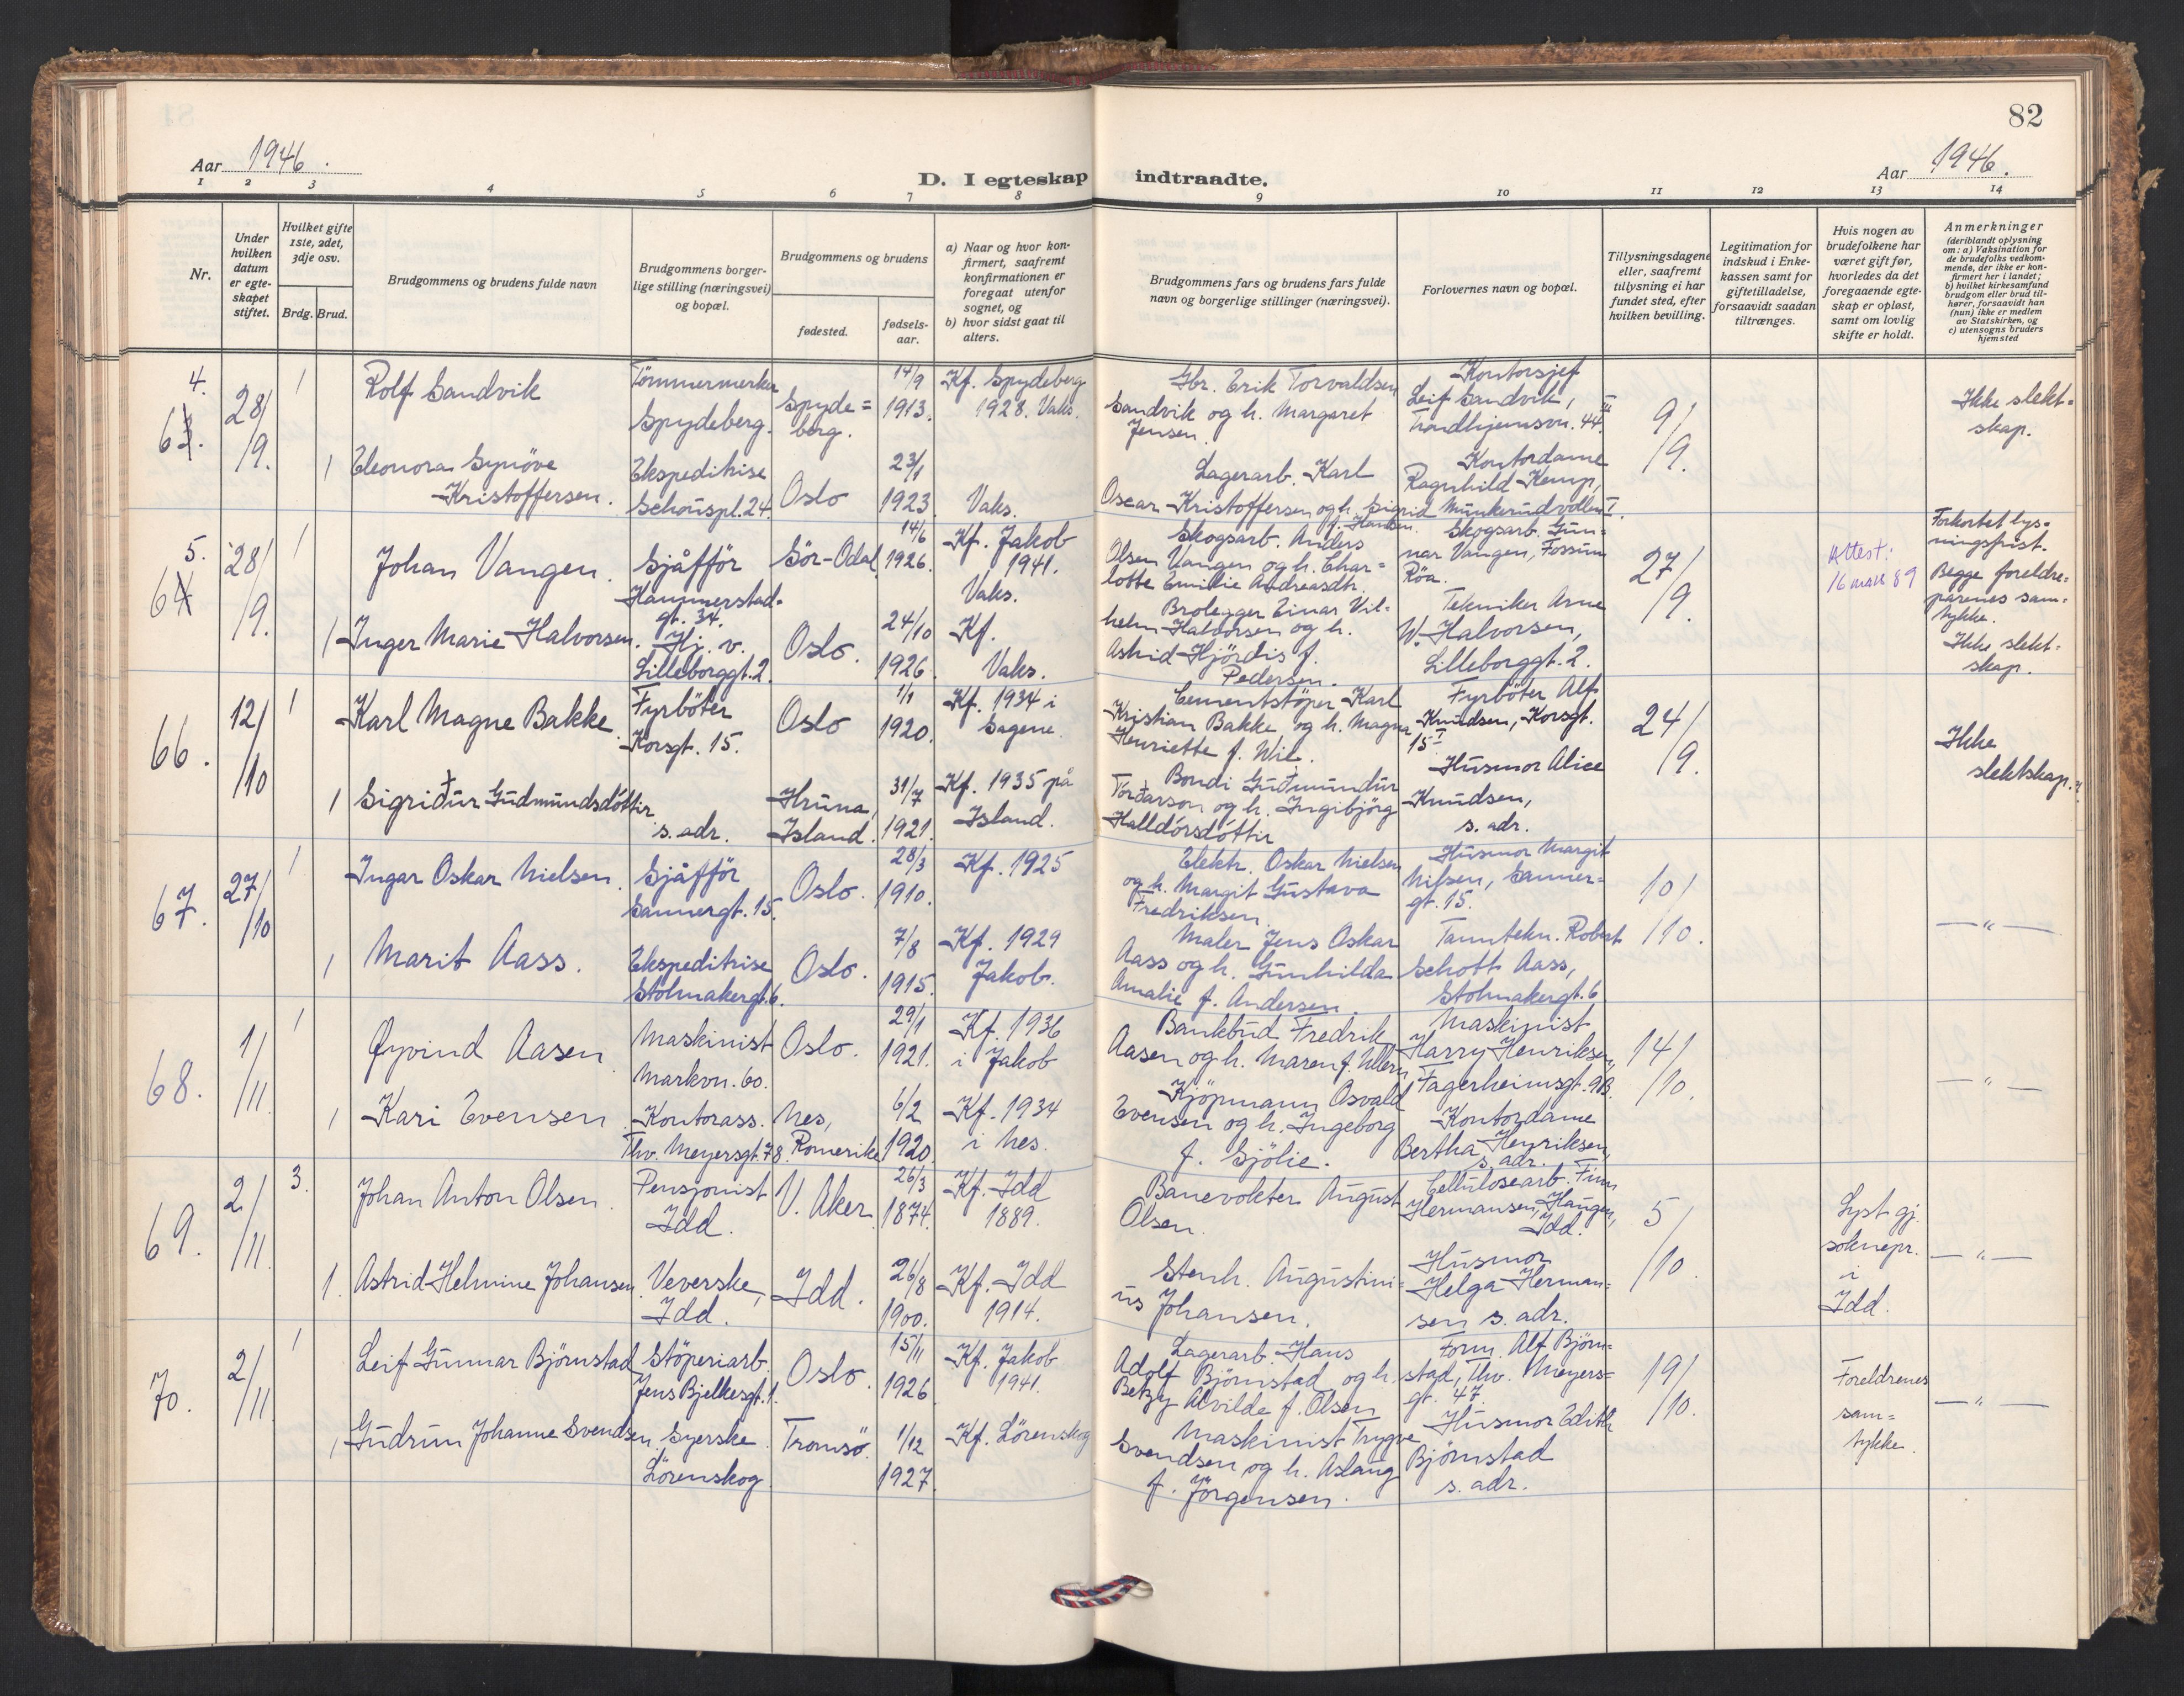 82
Aar 1946.
Aar 1946.
D. I egteskap indtraadte.
1 2 3 4 5 6 7 8 9 10 11 12 13 14
Nr.
Under hvilken datum er egteskapet stiftet.
Hvilket gifte 1ste, 2det, 3dje osv.
Brdg. Brud.
Brudgommens og brudens fulde navn
Brudgommens borgerlige stilling (næringsvei) og bopæl.
Brudgommens og brudens
fødested.
fødselsaar.
a) Naar og hvor konfirmert, saafremt konfirmationen er foregaat utenfor sognet, og
b) hvor sidst gaat til alters.
Brudgommens fars og brudens fars fulde navn og borgerlige stillinger (næringsvei).
Forlovernes navn og bopæl.
Tillysningsdagene eller, saafremt tillysning ei har fundet sted, efter hvilken bevilling.
Legitimation for indskud i Enkekassen samt for giftetilladelse, forsaavidt saadan tiltrænges.
Hvis nogen av brudefolkene har været gift før, hvorledes da det foregaaende egteskap er opløst, samt om lovlig skifte er holdt.
Anmerkninger
(deriblandt oplysning om: a) Vaksination for de brudefolks vedkommende, der ikke er konfirmert her i landet; b) hvilket kirkesamfund brudgom eller brud tilhører, forsaavidt han (hun) ikke er medlem av Statskirken, og c) utensogns bruders hjemsted
4.
63.
28/9.
1
Rolf Sandvik
Tömmermerker
Spydeberg.
Spydeberg.
14/9
1913.
Kf. Spydeberg
1928. Vaks.
Gbr. Erik Torvaldsen
Sandvik og h. Margaret
Jensen.
Kontorsjef
Leif Sandvik,
Trondhjemsvn. 44 III
9/9.
Ikke slekt=
skap.
1
Eleonora Synöve
Kristoffersen.
Ekspeditrise
Schouspl. 24.
Oslo
23/1
1923.
Vaks.
Lagerarb. Karl
Oscar Kristoffersen og h. Sigrid
f. Hansen.
Kontordame
Ragnhild Kemp,
Munkerudvollen I.
5.
64
28/9.
1
Johan Vangen.
Sjåfför
Hammerstad-
gt. 34.
Sör-Odal
14/6
1926.
Kf. Jakob
1941.
Vaks.
Skogsarb. Anders
Olsen Vangen og h. Char=
lotte Emilie Andreasdtr.
Skogsarb. Gun=
nar Vangen, Fossum
Röa.
27/9.
Attest:
16 mars 89
Forkortet lys=
ningsfrist.
Begge foreldre=
parenes sam=
tykke.
Ikke slekt=
skap.
1
Inger Marie Halvorsen.
Hj. v.
Lilleborggt. 2.
Oslo.
24/10
1926.
Kf.
Vaks.
Brolegger Einar Vil=
helm Halvorsen og h.
Astrid Hjördis f.
Pedersen.
Tekniker Arne
W. Halvorsen,
Lilleborggt. 2.
66.
12/10
1
Karl Magne Bakke.
Fyrböter
Korsgt. 15.
Oslo
1/1
1920.
Kf. 1934 i
Sagene.
Cementstöper Karl
Kristian Bakke og h. Magna
Henriette f. Wik.
Fyrböter Alf
Knudsen, Korsgt.
15 I
24/9.
Ikke
slektskap.
1
Sigriður Gudmundsdóttir
s. adr.
Hruna,
Island.
31/7
1921.
Kf. 1935 på
Island.
Bondi Guðmundur
Torðarson og h. Ingibjörg
Halldórsdóttir
Husmor Alice
Knudsen,
s. adr.
67.
27/10
1
Ingar Oskar Nielsen.
Sjåfför
Sannergt. 15.
Oslo.
28/3
1910.
Kf. 1925
Elektr. Oskar Nielsen
og h. Margit Gustava
Fredriksen.
Husmor Margit
Nilsen, Sanner=
gt. 15.
10/10.
— " —
1
Marit Aass.
Ekspeditrise
Stolmakergt. 6.
Oslo.
7/8
1915.
Kf. 1929
Jakob.
Maler Jens Oskar
Aass og h. Gunhilda
Amalie f. Andersen.
Tanntekn. Robert
Schott Aass,
Stolmakergt. 6
68.
1/11.
1
Øyvind Aasen.
Maskinist
Markvn. 60.
Oslo.
29/1
1921.
Kf. 1936
i Jakob
Bankbud Fredrik
Aasen og h. Maren f. Ullern
Maskinist
Harry Henriksen,
Fagerheimsgt. 9B.
14/10.
— " —
1
Kari Evensen.
Kontorass.
Thv. Meyersgt. 78.
Nes,
Romerike
6/2
1920.
Kf. 1934
i Nes.
Kjöpmann Osvald
Evensen og h. Ingeborg
f. Sjölie.
Kontordame
Bertha Henriksen,
s. adr.
69.
2/11.
3.
Johan Anton Olsen.
Pensjonist
Idd.
V. Aker
26/3
1874.
Kf. Idd
1889.
Banevokter August
Olsen.
Cellulosearb. Finn
Hermansen, Haugen,
Idd.
5/10.
Lyst gj.
soknepr.
i
Idd.
— " —
1.
Astrid Helmine Johansen.
Veverske,
Idd.
Idd.
26/8
1900.
Kf. Idd
1914.
Stenh. Augustini=
us Johansen.
Husmor
Helga Herman=
sen s. adr.
70.
2/11.
1
Leif Gunnar Björnstad
Stöperiarb.
Jens Bjelkesgt. 1.
Oslo.
15/11
1926.
Kf. Jakob
1941.
Lagerarb. Hans
Adolf Björnstad og h.
Betzy Alvilde f. Olsen
Form. Alf Björn=
stad, Thv. Meyers=
gt. 47.
19/10.
Foreldrenes
sam=
tykke.
— " —
1
Gudrun Johanne Svendsen.
Syerske
Lörenskog
Tromsö.
1/12
1927.
Kf. Lörenskog
Maskinist Trygve
Svendsen og h. Aslaug
f. Jörgensen.
Husmor Edith
Björnstad
s. adr.